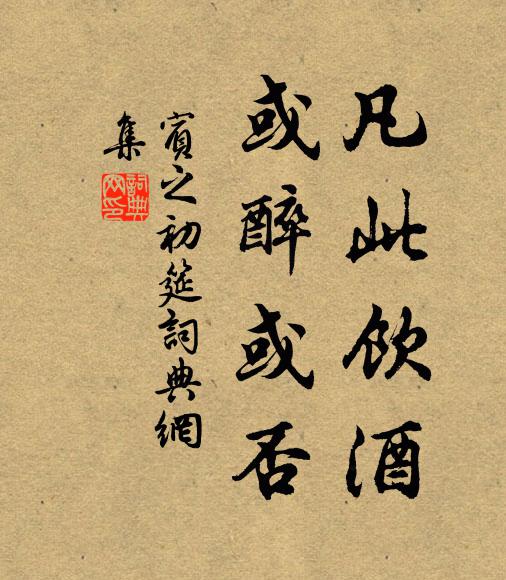 凡此饮酒
或醉或否
賓之初筵詞典網
集
詞典
网印